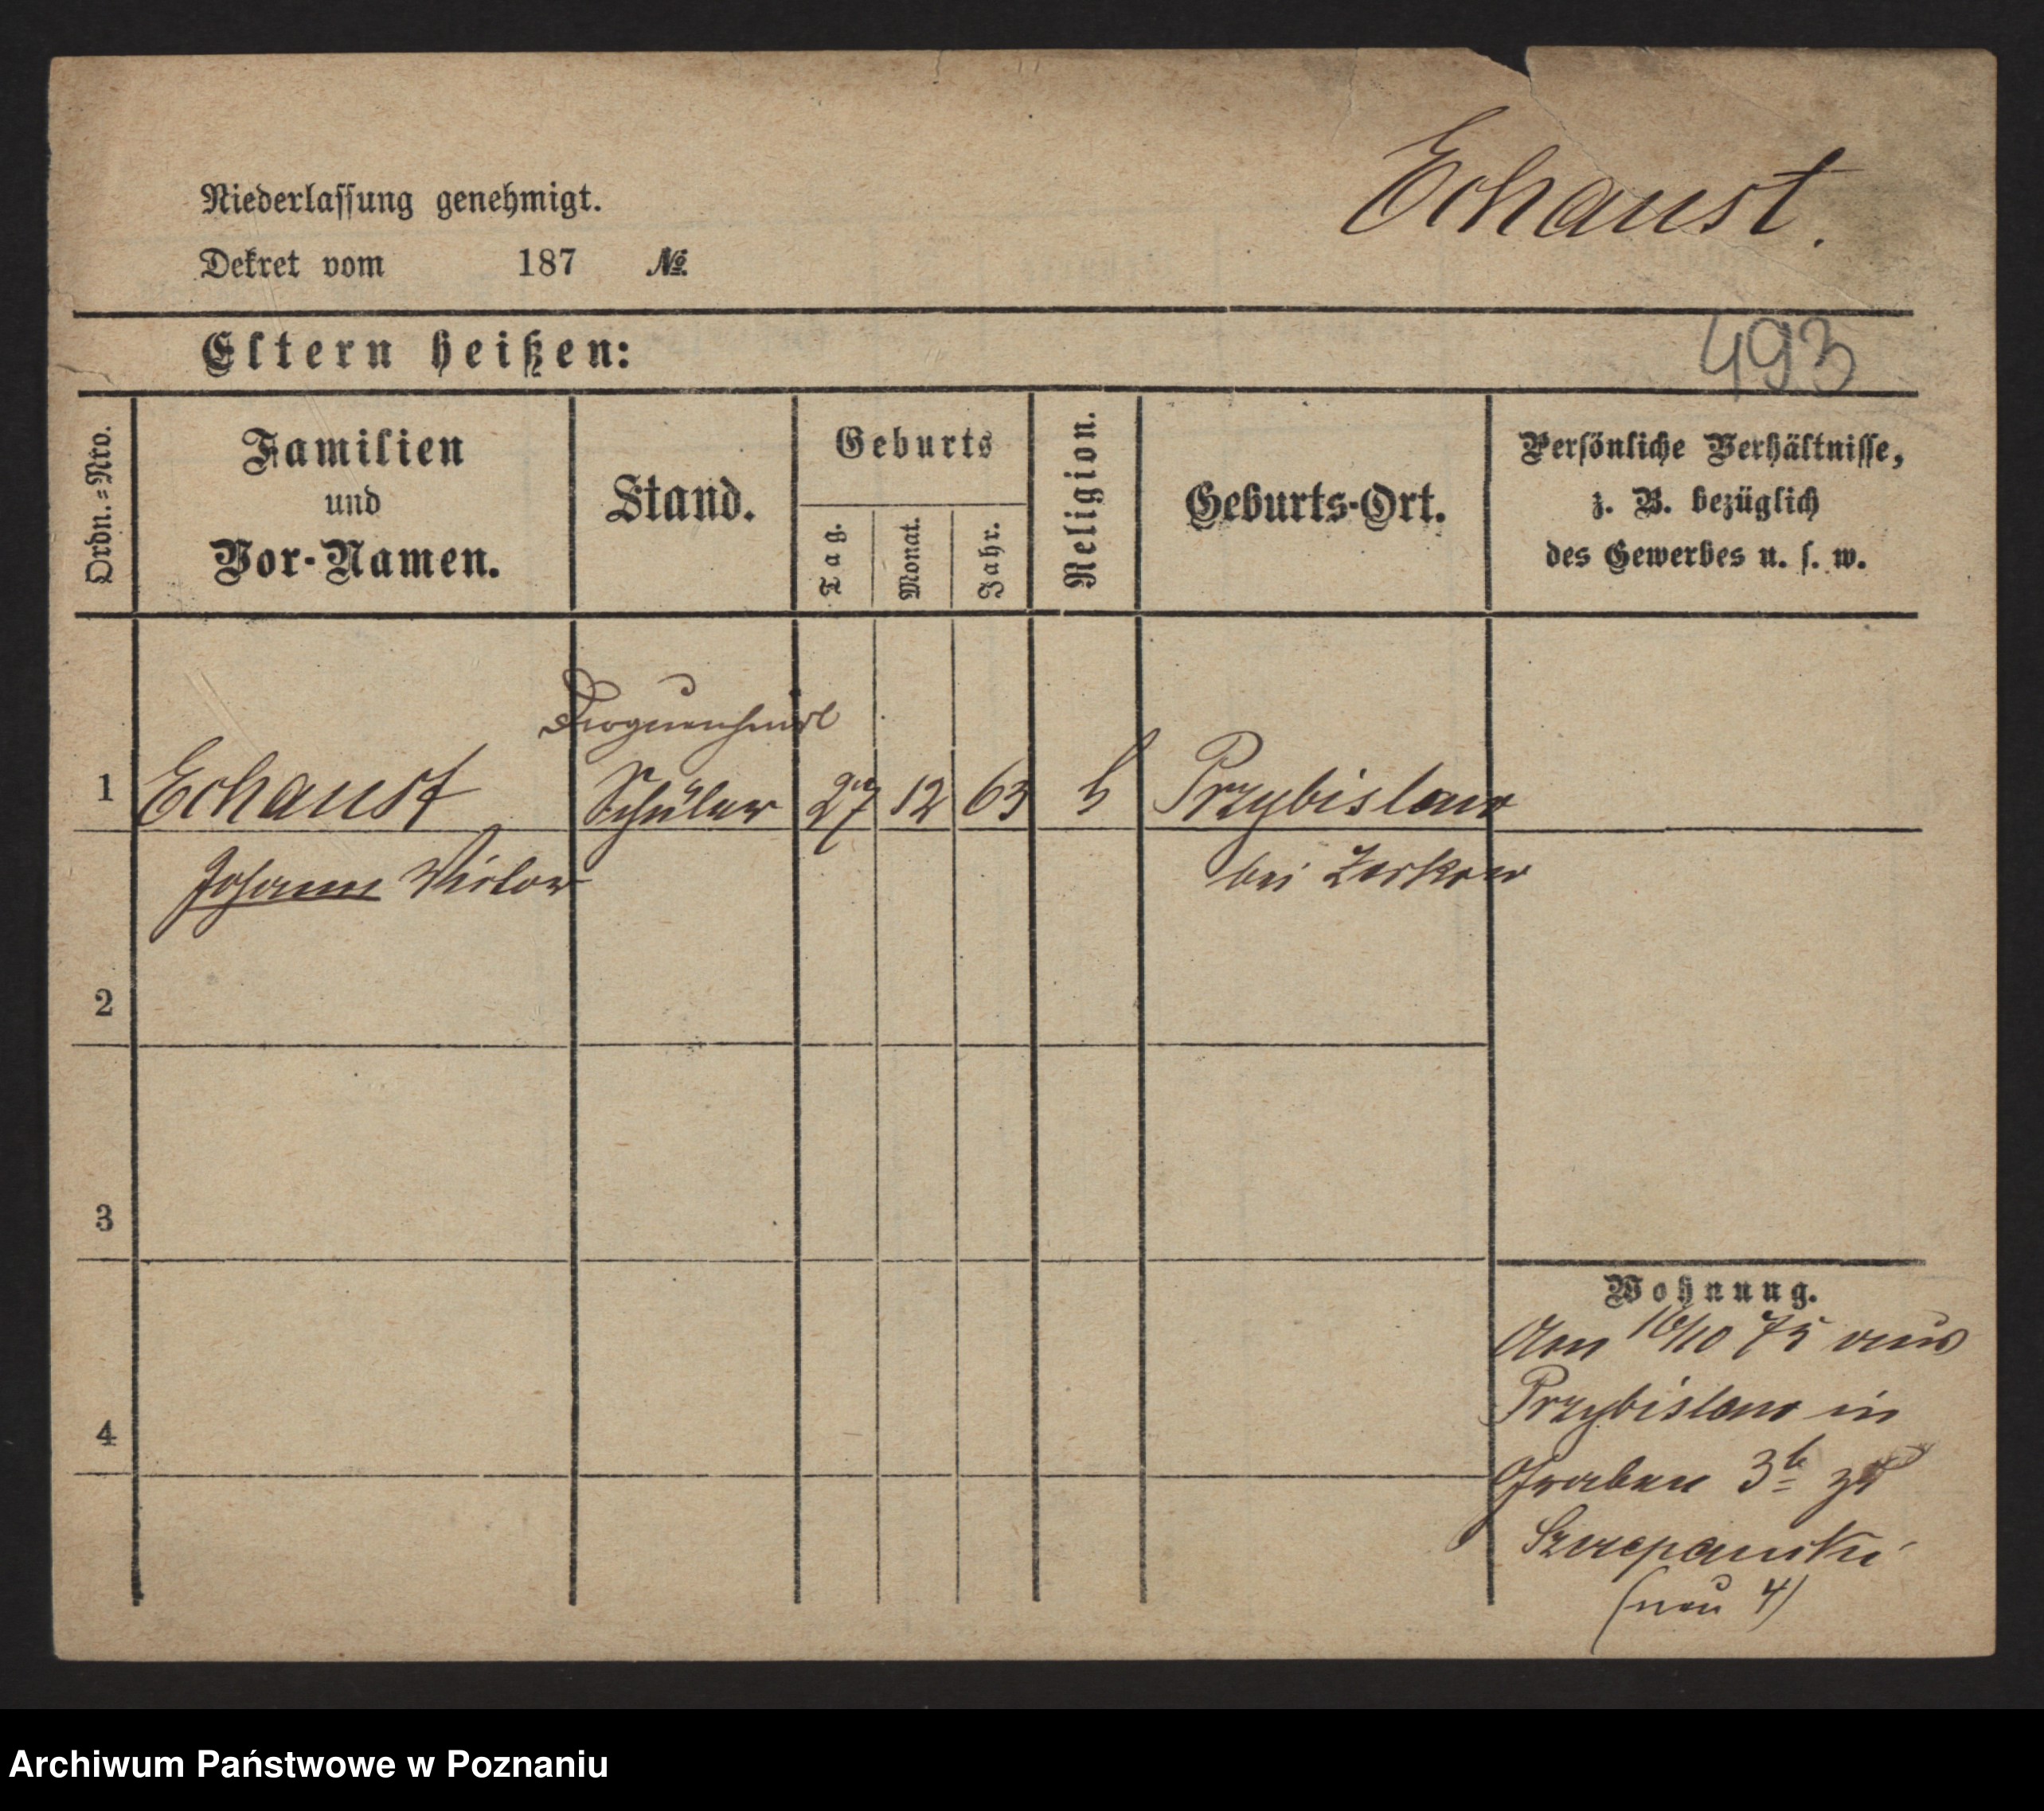 Echaust.
Niederlassung genehmigt.
Dekret vom 187 №
Eltern heißen:
493
Ordn.=Nro.
Familien
und
Vor-Namen.
Stand.
Geburts
Tag.
Monat.
Jahr.
Religion.
Geburts-Ort.
Persönliche Verhältnisse,
z. B. bezüglich
des Gewerbes u. s. w.
1 Echaust Schüler 27 12 63 Przybislaw
Johann Victor bei Zerkow
2
3
4
Wohnung.
Am 16/10 75 aus
Przybislaw in
Graben 3b zu
Szczepanski
(neu 4)
Archiwum Państwowe w Poznaniu